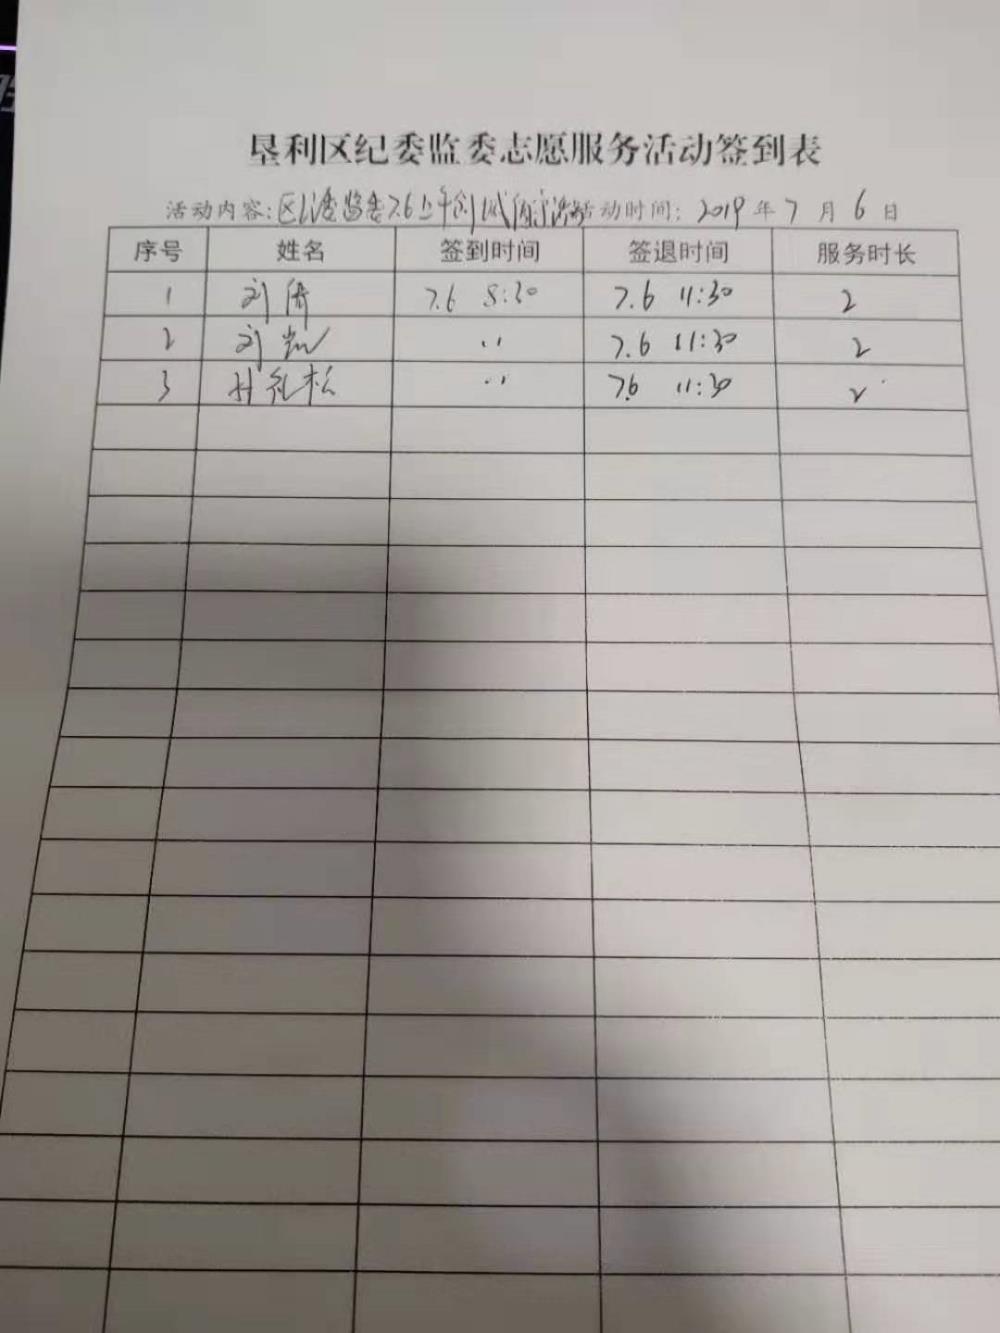 垦利区纪委监委志愿服务活动签到表
活动内容:区纪委监委7.6上午创城 活动时间: 2019年7月6日
序号 姓名 签到时间 签退时间 服务时长
1 刘倩 7.6 8:30 7.6 11:30 2
2 刘凯 〃 7.6 11:30 2
3 礼松 〃 7.6 11:30 2